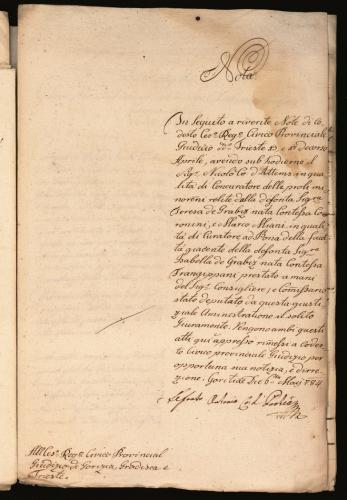 Nota
In seguito a riverite Note di co-
desto Ces.º Reg.º Civico Provinciale
Giudizio di Trieste e decorso
Aprile, avendo sub hodierno il
Sig.r Nicolò Co: d'Attems in qua-
lità di Concuratore delle proli mi-
noreni relite dalla defonta Sig.ra
Teresa de Grabiz nata Contessa Co-
ronini, e Marco Miani in quali-
tà di Curatore ad Acta della facol-
tà giacente della defonta Sig.ra
Isabella de Grabiz nata Contessa
Frangippani prestato a mani
del Sig.r Consigliere, e Commissario
stato deputato da questa giusti-
ziale Aministrazione il solito
Giuramento. Vengono ambi questi
atti qui appresso rimessi a codes-
to Civico provinciale Giudizio per
opportuna sua notizia, e direz-
zione. Gorizia Li 6 Mag. 784
Antonio
All Ces.º Reg.º Civico Provincial
Giudizio di Gorizia, Gradisca e
Trieste.